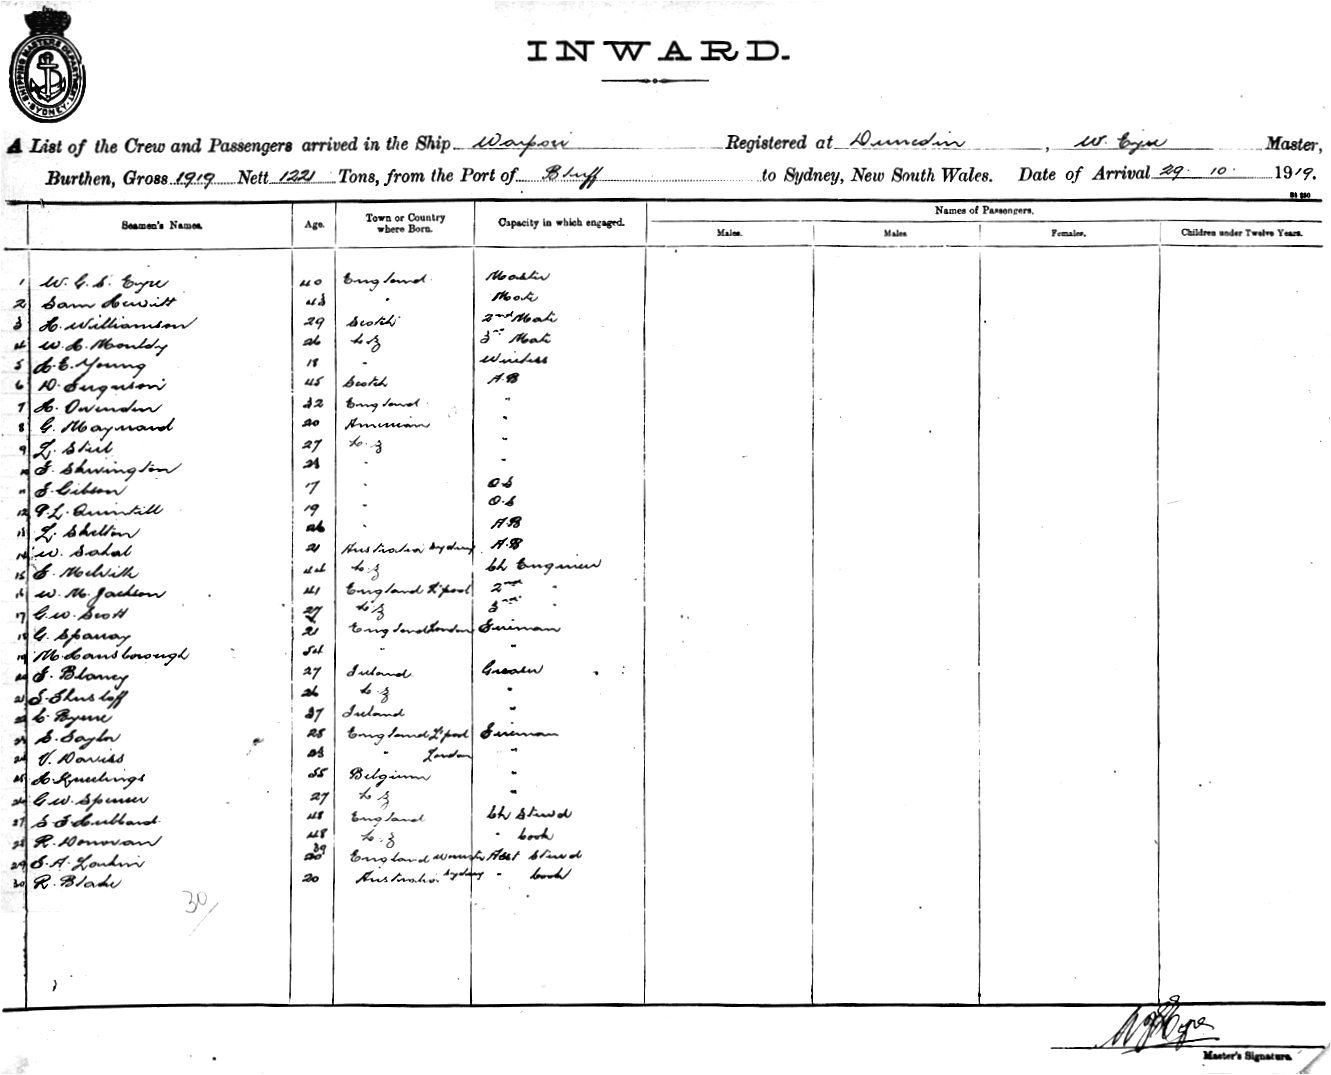 SHIPPING MASTERS DEPARTMENT SYDNEY
INWARD.
A List of the Crew and Passengers arrived in the Ship Waipori Registered at Dunedin, W. Eyre Master,
Burthen, Gross 1919 Nett 1221 Tons, from the Port of Bluff to Sydney, New South Wales. Date of Arrival 29. 10. 1919.
Seamen's Names. Age. Town or Country where Born. Capacity in which engaged. Names of Passengers.
Males. Males Females. Children under Twelve Years.
1 W. G. S. Eyre 40 England Master
2 Sam Hewitt 43 " Mate
3 H. Williamson 29 Scotch 2nd Mate
4 W. H. Mouldy 26 N. Z 3rd Mate
5 H. E. Young 18 " Wireless
6 D. Ferguson 45 Scotch A.B
7 H. Ovenden 32 England "
8 G. Maynard 20 American "
9 L. Steel 27 N. Z "
10 F. Skevington 23 " "
11 F. Gibson 17 " O.S
12 P. L. Quintill 19 " O.S
13 L. Shelton 26 " A.B
14 W. Sahal 21 Australia Sydney A.B
15 E. Melville 44 N. Z Ch Engineer
16 W. M. Jackson 41 England L'pool 2nd "
17 G. W. Scott 27 N. Z 3rd "
18 G. Sparray 21 England London Fireman
19 M. Hansborough 54 " "
20 F. Blaney 27 Ireland Greaser
21 26 N. Z "
22 C. Byrne 37 Ireland "
23 S. Taylor 28 England L'pool Fireman
24 V. Daviss 23 " London "
25 H. 55 Belgium "
26 G. W. Spencer 27 N. Z "
27 S. F. Hubbard 48 England Ch Stewd
28 R. Donovan 48 N. Z " Cook
29 S. A. Larkin 39 England Asst Stewd
30 R. Blake 20 Australia Sydney " Cook
30/
Master's Signature.